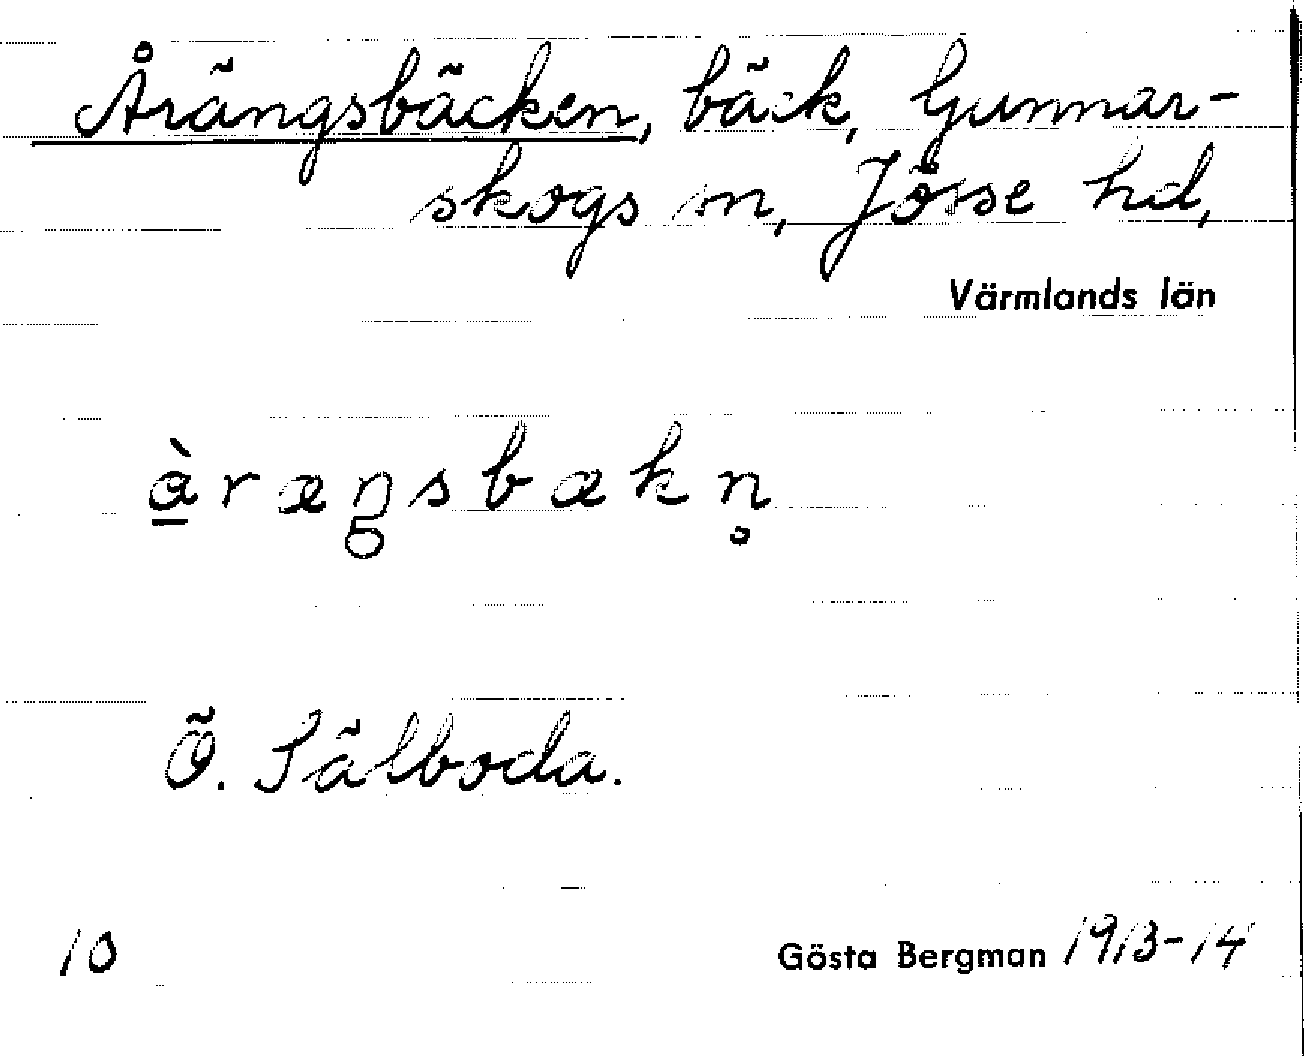 Årängsbäcken, bäck, Gunnar-
skogs sn, Jösse hd,
Värmlands län
à̱ræŋsbækn̥
Ö. Sälboda.
10 Gösta Bergman 1913-14